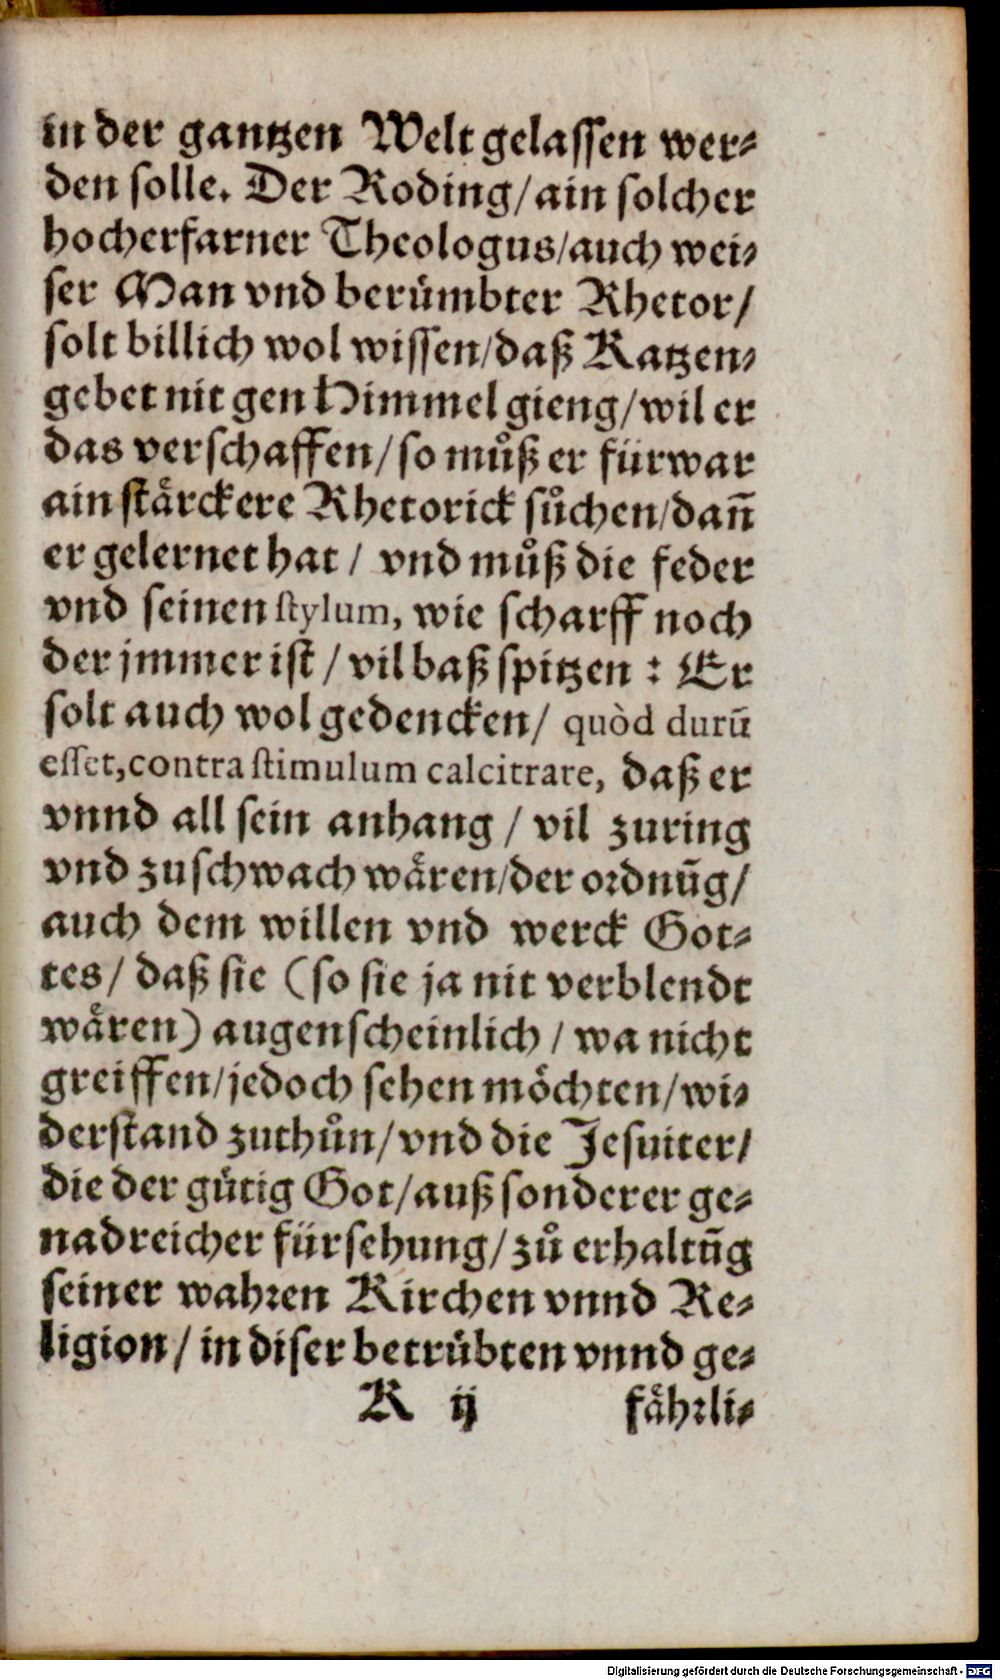 in der gantzen Welt gelassen wer⸗
den solle. Der Roding/ ain solcher
hocherfarner Theologus/ auch wei⸗
ser Man vnd berümbter Rhetor/
solt billich wol wissen/ daß Katzen⸗
gebet nit gen Himmel gieng/ wil er
das verschaffen/ so můß er fürwar
ain stärckere Rhetorick sůchen/ dañ
er gelernet hat/ vnd můß die feder
vnd seinen stylum, wie scharff noch
der jmmer ist/ vil baß spitzen: Er
solt auch wol gedencken/ quòd durū
esset, contra stimulum calcitrare, daß er
vnnd all sein anhang/ vil zuring
vnd zuschwach wären/ der ordnūg/
auch dem willen vnd werck Got⸗
tes/ daß sie (so sie ja nit verblendt
wären) augenscheinlich/ wa nicht
greiffen/ jedoch sehen möchten/ wi⸗
derstand zuthůn/ vnd die Jesuiter/
die der gütig Got/ auß sonderer ge⸗
nadreicher fürsehung/ zů erhaltūg
seiner wahren Kirchen vnnd Re⸗
ligion/ in diser betrübten vnnd ge⸗
K ij fährli⸗
Digitalisierung gefördert durch die Deutsche Forschungsgemeinschaft - DFG